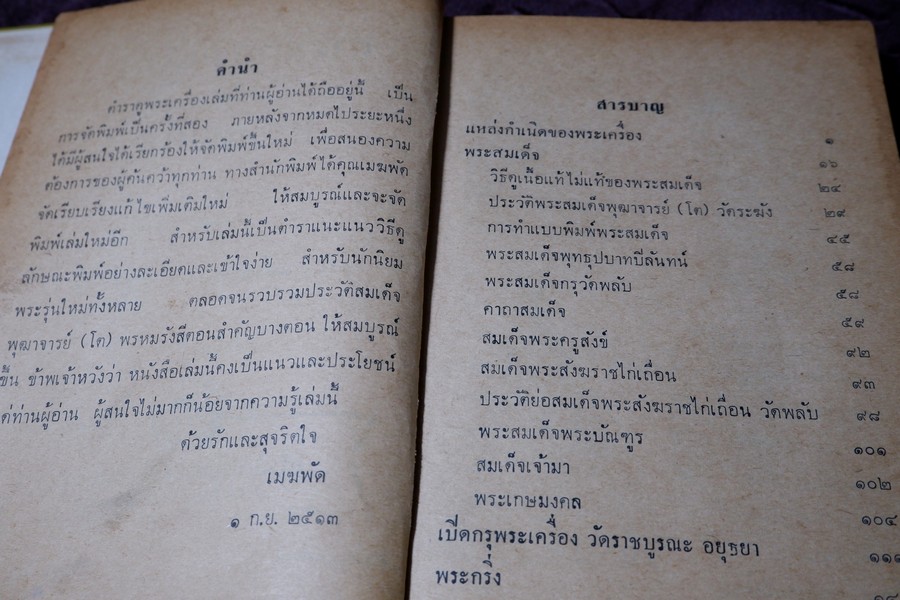 คำนำ
ตำราดูพระเครื่องเล่มที่ท่านผู้อ่านได้ถืออยู่นี้ เป็น
การจัดพิมพ์เป็นครั้งที่สอง ภายหลังจากหมดไประยะหนึ่ง
ได้มีผู้สนใจได้เรียกร้องให้จัดพิมพ์ขึ้นใหม่ เพื่อสนองความ
ต้องการของผู้ค้นคว้าทุกท่าน ทางสำนักพิมพ์ได้คุณเมฆพัด
จัดเรียบเรียงแก้ไขเพิ่มเติมใหม่ ให้สมบูรณ์และจะจัด
พิมพ์เล่มใหม่อีก สำหรับเล่มนี้เป็นตำราแนะแนววิธีดู
ลักษณะพิมพ์อย่างละเอียดและเข้าใจง่าย สำหรับนักนิยม
พระรุ่นใหม่ทั้งหลาย ตลอดจนรวบรวมประวัติสมเด็จ
พุฒาจารย์ (โต) พรหมรังสีตอนสำคัญบางตอน ให้สมบูรณ์
ขึ้น ข้าพเจ้าหวังว่า หนังสือเล่มนี้คงเป็นแนวและประโยชน์
ต่ท่านผู้อ่าน ผู้สนใจไม่มากก็น้อยจากความรู้เล่มนี้
ด้วยรักและสุจริตใจ
เมฆพัด
๑ ก.ย. ๒๕๑๓
สารบาญ
แหล่งกำเนิดของพระเครื่อง ๑
พระสมเด็จ ๑๖
วิธีดูเนื้อแท้ไม่แท้ของพระสมเด็จ ๒๔
ประวัติพระสมเด็จพุฒาจารย์ (โต) วัดระฆัง ๒๙
การทำแบบพิมพ์พระสมเด็จ ๔๕
พระสมเด็จพุทธุปบาทปิลันทน์ ๕๘
พระสมเด็จกรุวัดพลับ ๕๘
คาถาสมเด็จ ๕๙
สมเด็จพระครูสังข์ ๙๒
สมเด็จพระสังฆราชไก่เถื่อน ๙๓
ประวัติย่อสมเด็จพระสังฆราชไก่เถื่อน วัดพลับ ๙๘
พระสมเด็จพระบัณฑูร ๑๐๑
สมเด็จเจ้ามา ๑๐๒
พระเกษมงคล ๑๐๔
เปิดกรุพระเครื่อง วัดราชบูรณะ อยุธยา
พระกริ่ง